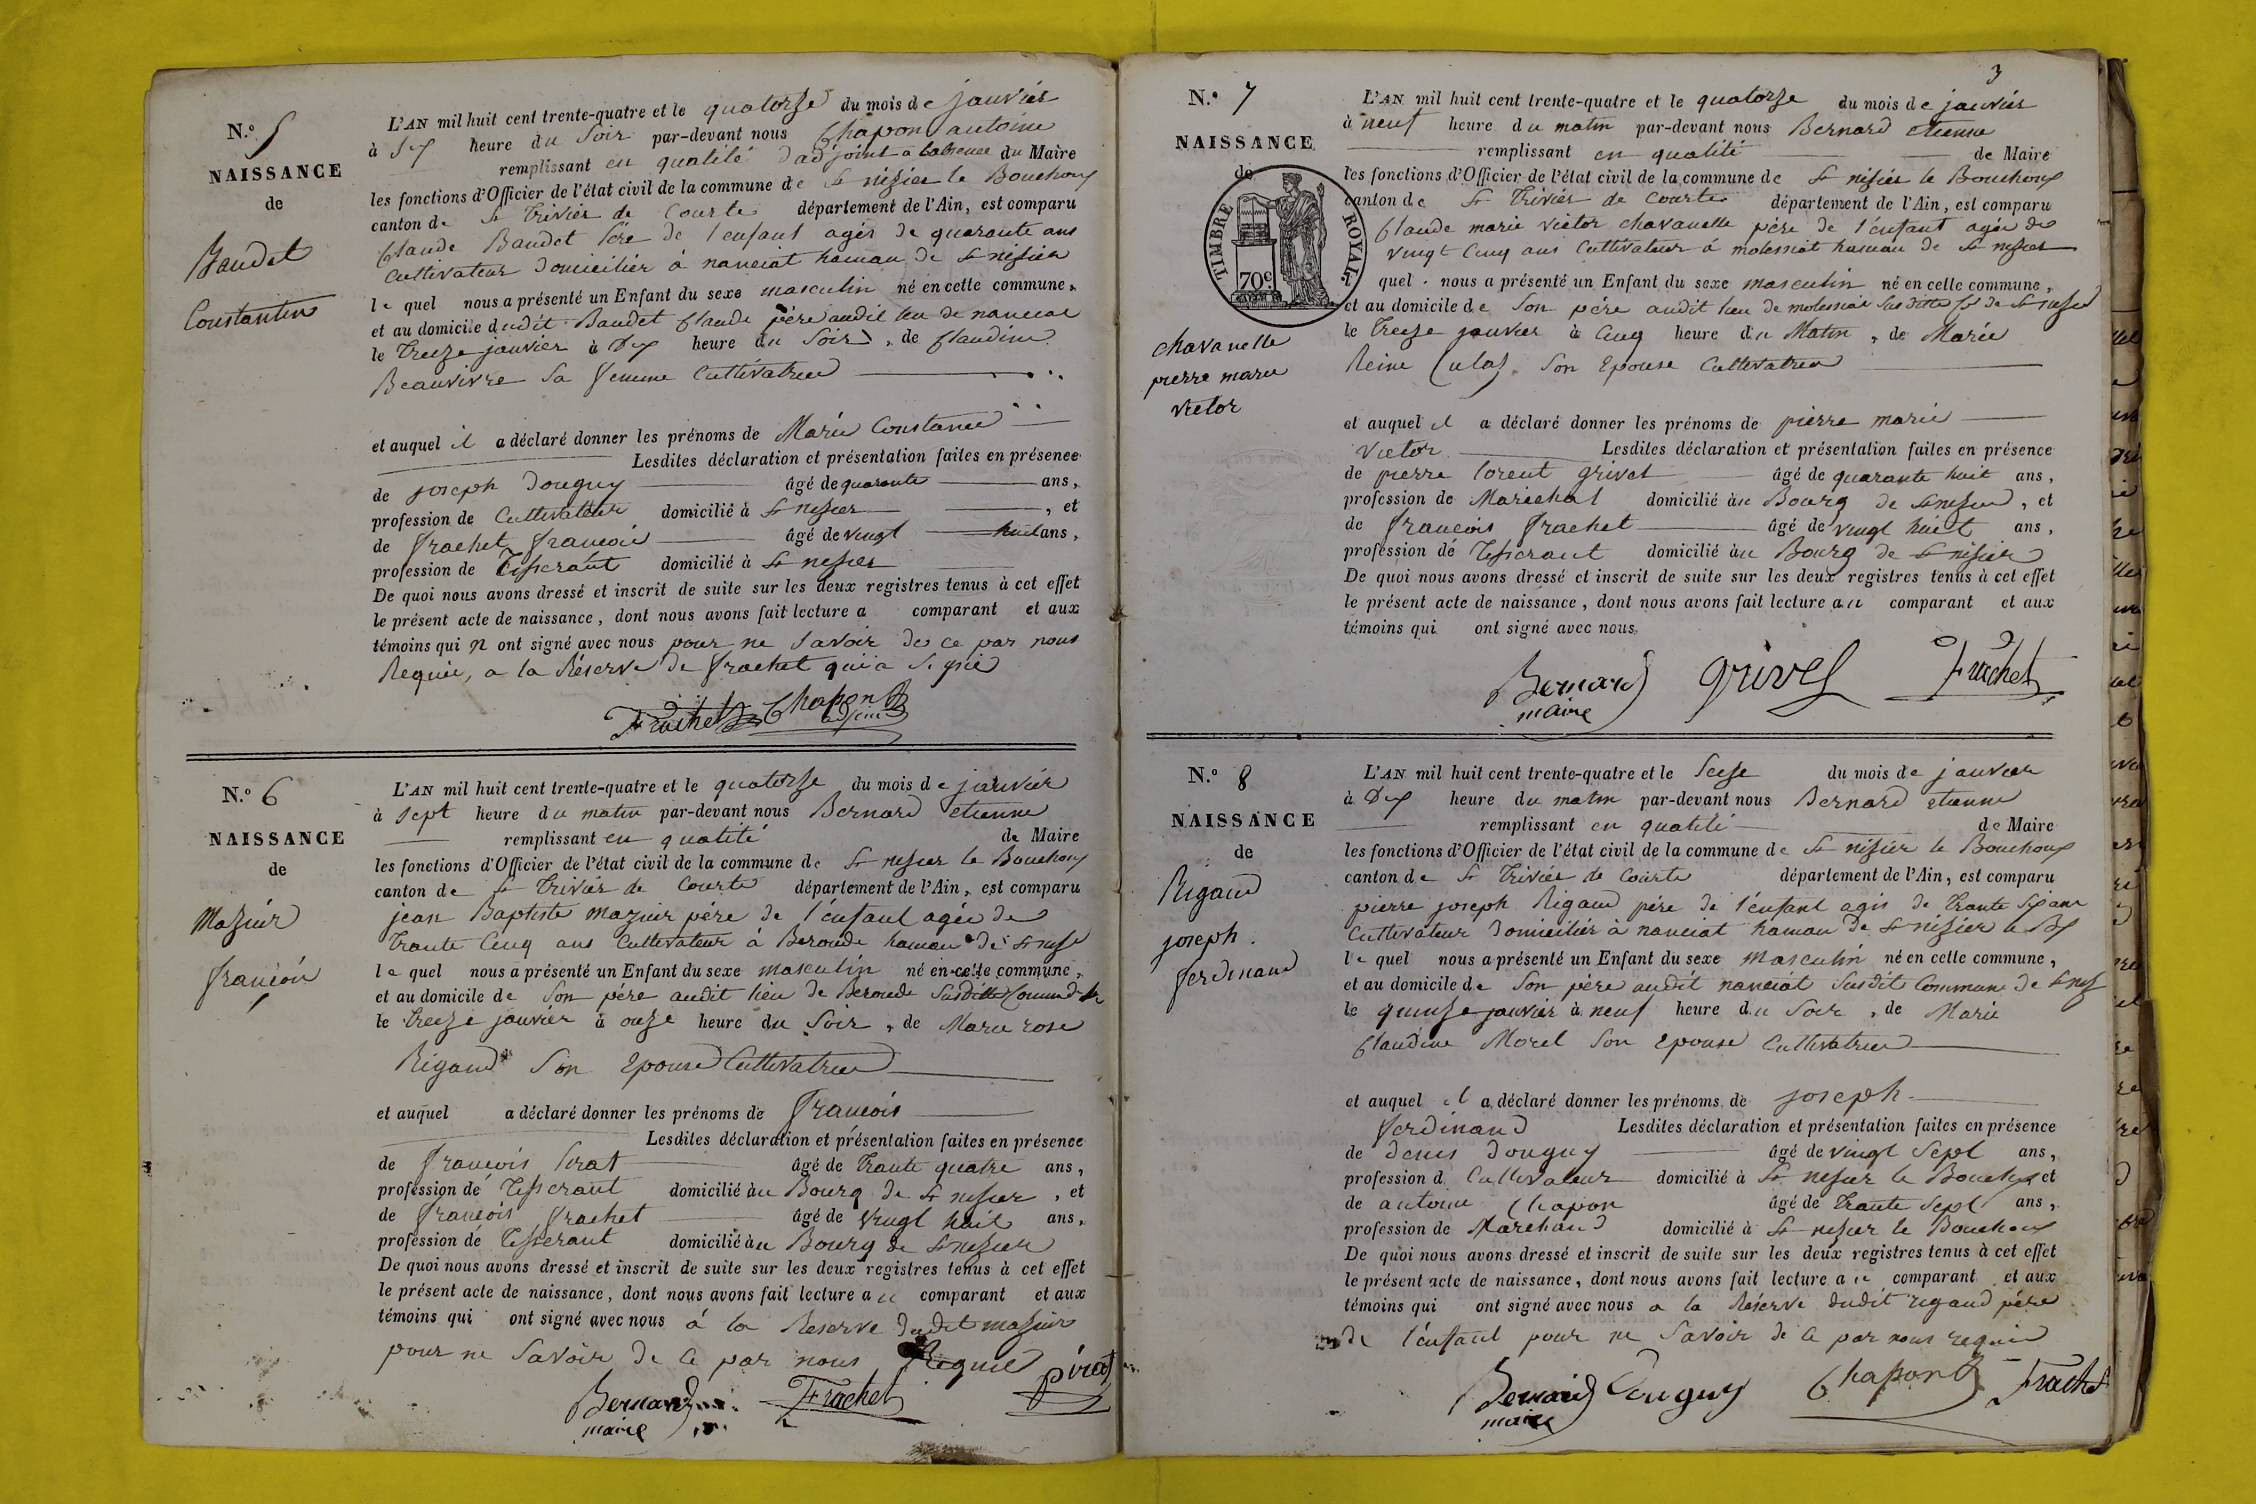 N.º 5
NAISSANCE
de
Baudet
Constantin
L'AN mil huit cent trente-quatre et le quatorze du mois de janvier
à six heure du Soir par-devant nous Chapon antoine
remplissant en qualité d'adjoint a labsence du Maire
les fonctions d'Officier de l'état civil de la commune de St nisier le Bouchoux
canton de St Trivier de Courte département de l'Ain, est comparu
Claude Baudet Père de l'enfant agér de quarante ans
Cultivateur domicilier à nanciat hameau de St nisier
le quel nous a présenté un Enfant du sexe masculin né en cette commune,
et au domicile dudit Baudet Claude père audit lieu de nanciat
le Treize janvier à Dix heure du Soir, de Claudine
Beauvivre Sa femme Cultivatrice
et auquel il a déclaré donner les prénoms de Marie Constance
Lesdites déclaration et présentation faites en présence
de joseph Douguy âgé de quarante ans,
profession de Cultivateur domicilié à St nisier, et
de Frachet François âgé de vingt huit ans,
profession de Tisserant domicilié à St nisier
De quoi nous avons dressé et inscrit de suite sur les deux registres tenus à cet effet
le présent acte de naissance, dont nous avons fait lecture a comparant et aux
témoins qui n ont signé avec nous pour ne Savoir de ce par nous
Requie, a la Réserve de Frachet qui a Signé
Frachet Chapon
adjoint
N.º 6
NAISSANCE
de
Mazuir
françois
L'AN mil huit cent trente-quatre et le quatorze du mois de janvier
à sept heure du matin par-devant nous Bernard etienne
remplissant en qualité de Maire
les fonctions d'Officier de l'état civil de la commune de St nisier le Bouchoux
canton de St Trivier de Courte département de l'Ain, est comparu
jean Baptiste mazuir père de l'énfant agée de
Trante Cinq ans Cultivateur à Beroude hameau de St nisier
le quel nous a présenté un Enfant du sexe masculin né en cette commune,
et au domicile de Son père audit lieu de Beroude Susditte Commune de
le treize janvier à onze heure du Soir, de Marie rose
Rigaud Son Epouse Cultivatrice
et auquel a déclaré donner les prénoms de François
Lesdites déclaration et présentation faites en présence
de François Pirat âgé de Trante quatre ans,
profession de Tisserant domicilié au Bourg de St nisier, et
de François Frachet âgé de vingt huit ans,
profession de Tisserant domicilié au Bourg de St nisier
De quoi nous avons dressé et inscrit de suite sur les deux registres tenus à cet effet
le présent acte de naissance, dont nous avons fait lecture au comparant et aux
témoins qui ont signé avec nous à la Reserve dudit mazuir
pour ne Savoir de ce par nous Requie
Bernard Frachet pirat
maire
3
N.º 7
NAISSANCE
de
TIMBRE ROYAL
70c
chavanelle
pierre marie
victor
L'AN mil huit cent trente-quatre et le quatorze du mois de janvier
à neuf heure du matin par-devant nous Bernard etienne
remplissant en qualité de Maire
les fonctions d'Officier de l'état civil de la commune de St nisier le Bouchoux
canton de St Trivier de Courte département de l'Ain, est comparu
Claude marie victor chavanelle père de l'énfant agée de
vingt Cinq ans Cultivateur à molessiat hameau de St nisier
quel nous a présenté un Enfant du sexe masculin né en cette commune,
et au domicile de Son père audit lieu de molessiat Susditte de St nisier
le Treize janvier à Cinq heure du Matin, de Marie
Reine Culas Son Epouse Cultivatrice
et auquel il a déclaré donner les prénoms de pierre marie
Victor Lesdites déclaration et présentation faites en présence
de pierre lorent grivet âgé de quarante huit ans,
profession de Maréchal domicilié au Bourg de St nisier, et
de François Frachet âgé de vingt huit ans,
profession de Tisserant domicilié au Bourg de St nisier
De quoi nous avons dressé et inscrit de suite sur les deux registres tenus à cet effet
le présent acte de naissance, dont nous avons fait lecture au comparant et aux
témoins qui ont signé avec nous,
Bernard grivel Frachet
maire
N.º 8
NAISSANCE
de
Rigaud
joseph
ferdinand
L'AN mil huit cent trente-quatre et le Seize du mois de janvier
à Dix heure du matin par-devant nous Bernard etienne
remplissant en qualité de Maire
les fonctions d'Officier de l'état civil de la commune de St nisier le Bouchoux
canton de St Trivier de Courte département de l'Ain, est comparu
pierre joseph Rigaud père de l'énfant agér de Trante Six ans
Cultivateur domicilier à nanciat hamau de St nisier le Bx
le quel nous a présenté un Enfant du sexe Masculin né en cette commune,
et au domicile de Son père audit nanciat Susdit Commune de St nis
le quinze janvier à neuf heure du Soir, de Marie
Claudine Morel Son Epouse Cultivatrice
et auquel il a déclaré donner les prénoms de joseph
ferdinand Lesdites déclaration et présentation faites en présence
de denis Douguy âgé de vingt Sept ans,
profession d. Cultivateur domicilié à St nisier le Bouchoux et
de antoine Chapon âgé de Trante Sept ans,
profession de Marchand domicilié à St nisier le Bouchoux
De quoi nous avons dressé et inscrit de suite sur les deux registres tenus à cet effet
le présent acte de naissance, dont nous avons fait lecture au comparant et aux
témoins qui ont signé avec nous a la Reserve dudit rigaud père
de l'énfant pour ne Savoir de ce par nous requie
Bernard Douguy Chapon Frachet
maire